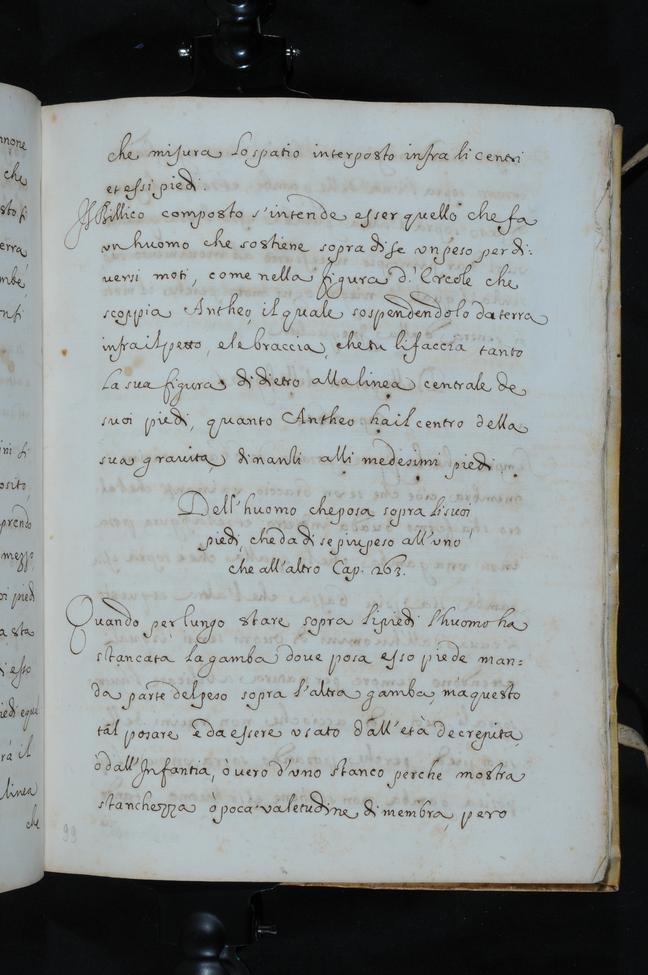 che misura lo spatio interposto infra li centri
et essi piedi.
Il Billico composto s'intende esser quello che fa
un huomo che sostiene sopra di se un peso per di:
versi moti, come nella figura d'Ercole che
scoppia Antheo, il quale sospendendolo da terra
infra il petto, e le braccia, che tu li faccia tanto
la sua figura di dietro alla linea centrale de
suoi piedi, quanto Antheo ha il centro della
sua gravita dinanti alli medesimi piedi.
Dell'huomo che posa sopra li suoi
piedi che da di se piu peso all'uno
che all'altro Cap. 263.
Quando per lungo stare sopra li piedi l'huomo ha
stancata la gamba dove posa esso piede man=
da parte del peso sopra l'altra gamba, ma questo
tal posare e da essere usato dall'età decrepita,
ò dall'Infantia, ò uero d'uno stanco perche mostra
stanchezza ò poca valetudine di membra, pero
99
nnone
che
sto si
erra
mbe,
onfi
ini si
osito,
prendo
mezzo
oi piedi
a sta
i esso
iedi equi
rà il
linea
che